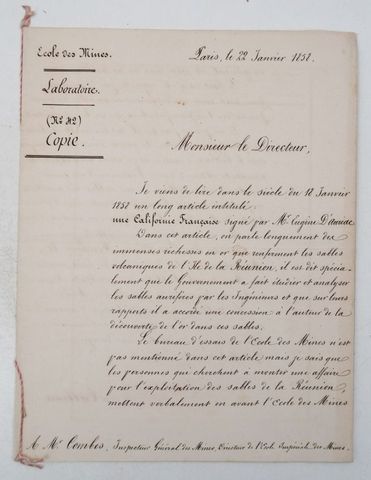 Ecole des Mines.
Laboratoire.
(No. 42)
Copie.
Paris, le 22 Janvier 1858.
Monsieur le Directeur,
Je viens de lire dans le siècle du 18 Janvier
1858 un long article intitulé:
une Californie Française signé par Mr. Eugène
Dans cet article, on parle longuement des
immenses richesses en or que renferment les sables
volcaniques de l'Ile de la Réunion, il est dit spécia-
lement que le Gouvernement a fait étudier et analyser
les sables aurifères par les Ingénieurs et que sur leurs
rapports il a accordé une concession à l'auteur de la
découverte de l'or dans ces sables.
Le bureau d'essais de l'Ecole des Mines n'est
pas mentionné dans cet article mais je sais que
les personnes qui cherchent à monter une affaire
pour l'exploitation des sables de la Réunion,
mettent verbalement en avant l'Ecole des Mines
A Mr. Combes, Inspecteur Général des Mines, Directeur de l'Ecole Impériale des Mines.